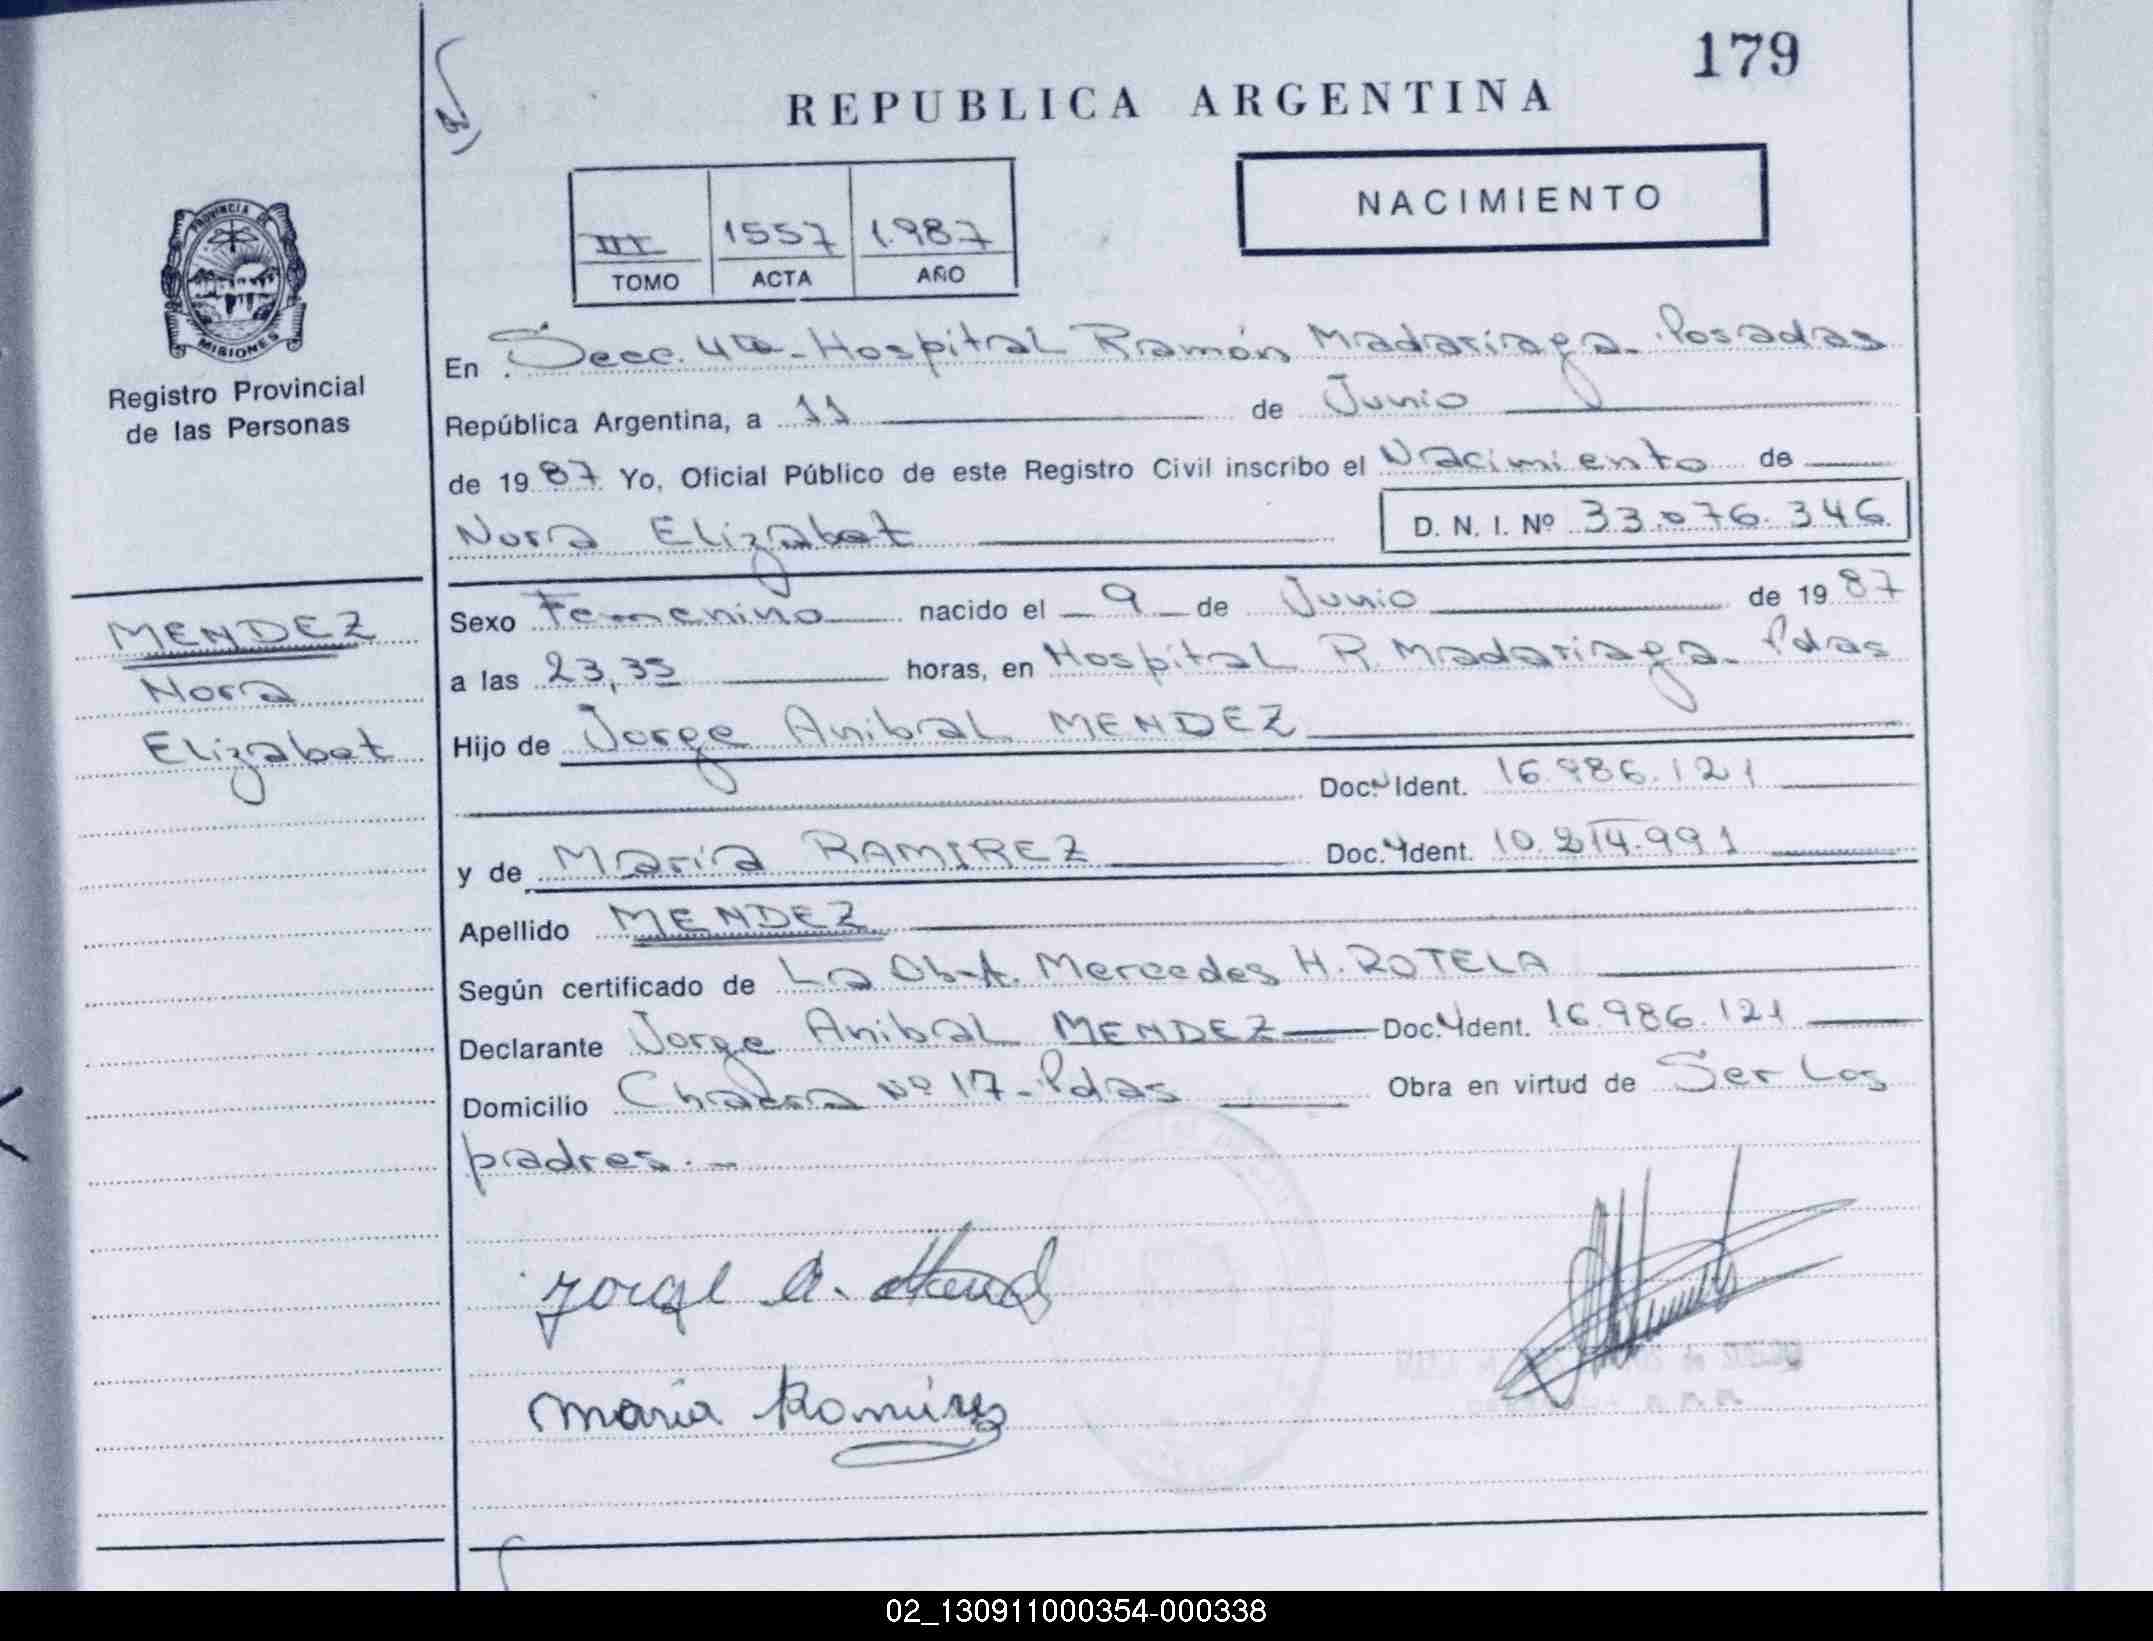 179
REPUBLICA ARGENTINA
NACIMIENTO
III 1557 1.987
TOMO ACTA AÑO
PROVINCIA DE
MISIONES
Registro Provincial
de las Personas
En Secc. 4ta - Hospital Ramón Madariaga - Posadas
República Argentina, a 11 de Junio
de 1987 Yo, Oficial Público de este Registro Civil inscribo el Nacimiento de
Nora Elizabet D. N. I. Nº 33.076.346
MENDEZ
Nora
Elizabet
Sexo Femenino nacido el 9 de Junio de 1987
a las 23,35 horas, en Hospital R. Madariaga - Pdas
Hijo de Jorge Anibal MENDEZ
Doc. Ident. 16.986.121
y de María RAMIREZ Doc. Ident. 10.214.991
Apellido MENDEZ
Según certificado de La Obst. Mercedes H. ROTELA
Declarante Jorge Anibal MENDEZ Doc. Ident. 16.986.121
Domicilio Chacra Nº 17 - Pdas Obra en virtud de Ser Los
padres. -
Jorge A. Mend
María Ramírez
02_130911000354-000338